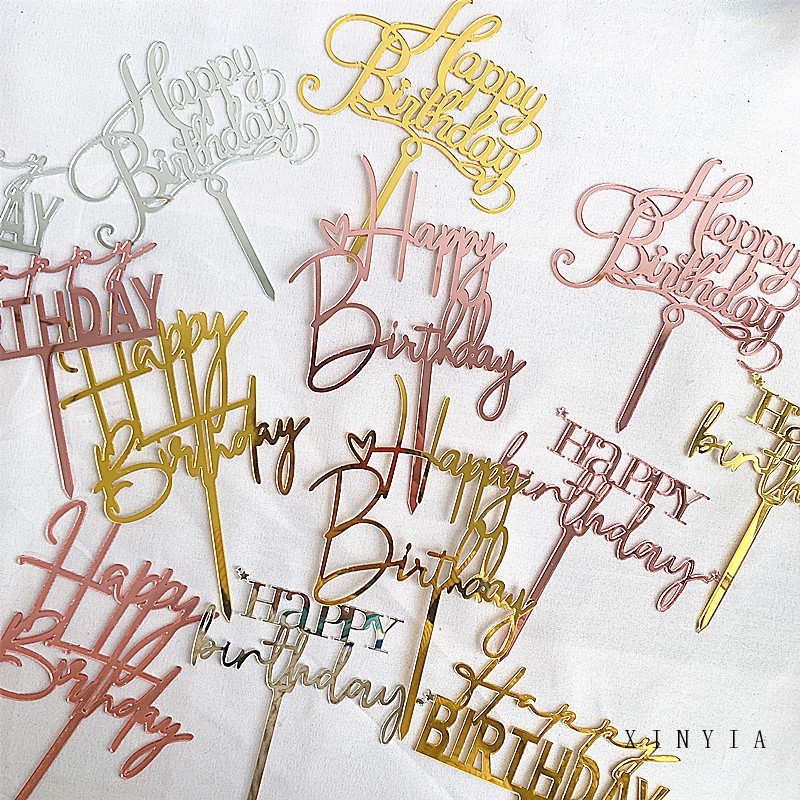 Happy
Birthday
Happy
Birthday
AY
Happy
Birthday
Happy
Birthday
ppy
RTHDAY
Happy
Birthday
Happy
Birthday
HAPPY
birthday
birth
Happy
Birthday
HAPPY
birthday
Happy
BIRTHDAY
XINYIA